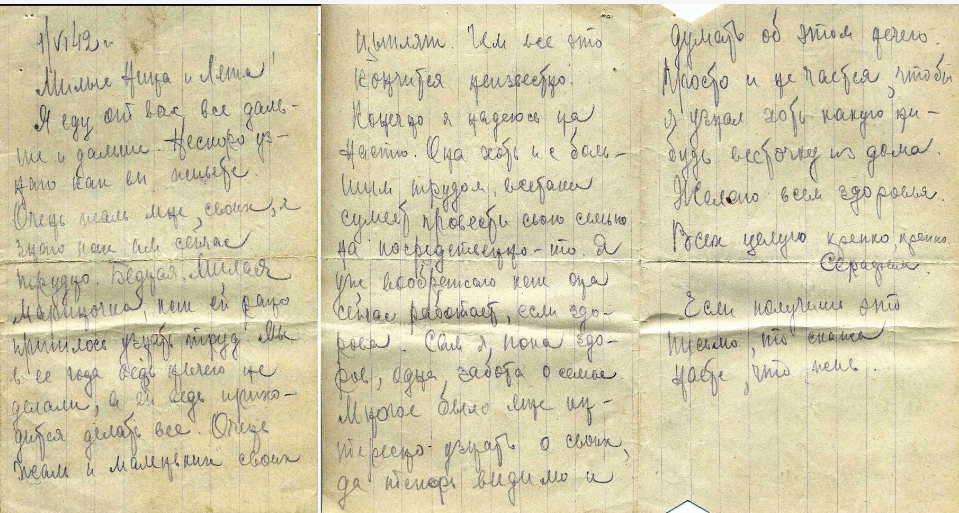 1/VI 42 г.
Милые Нина и Лета!
Я еду от вас, все даль-
ше и дальше. Нескоро уз-
наю как вы живете.
Очень жаль мне, своих, я
знаю как им сейчас
трудно. Бедная, Милая
Мариночка, как ей рано
пришлось узнать труд! Мы
в ее года ведь ничего не
делали, а ей ведь прихо-
дится делать все. Очень
жаль и маленьких своих
цыплят. Чем все это
кончится неизвестно.
Конечно я надеюсь на
Настю. Она хоть и с боль-
шим трудом, всетаки
сумеет провести свою семью
на посредственно-то. Я
уж воображаю как она
сейчас работает, если здо-
рова. Сам я, пока здо-
ров, одна забота о семье.
Многое было мне ин-
тересно узнать о своих,
да теперь видимо и
думать об этом нечего.
Просто и не чается, чтобы
я узнал хоть какую ни-
будь весточку из дома.
Желаю всем здоровья.
Всех целую крепко, крепко.
Серафим.
Если получили это
письмо, то скажи
Насте, что